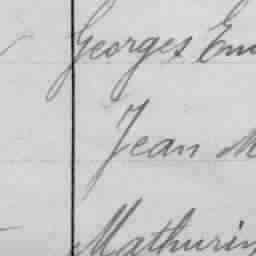 Georges Em
Jean M
Mathurin